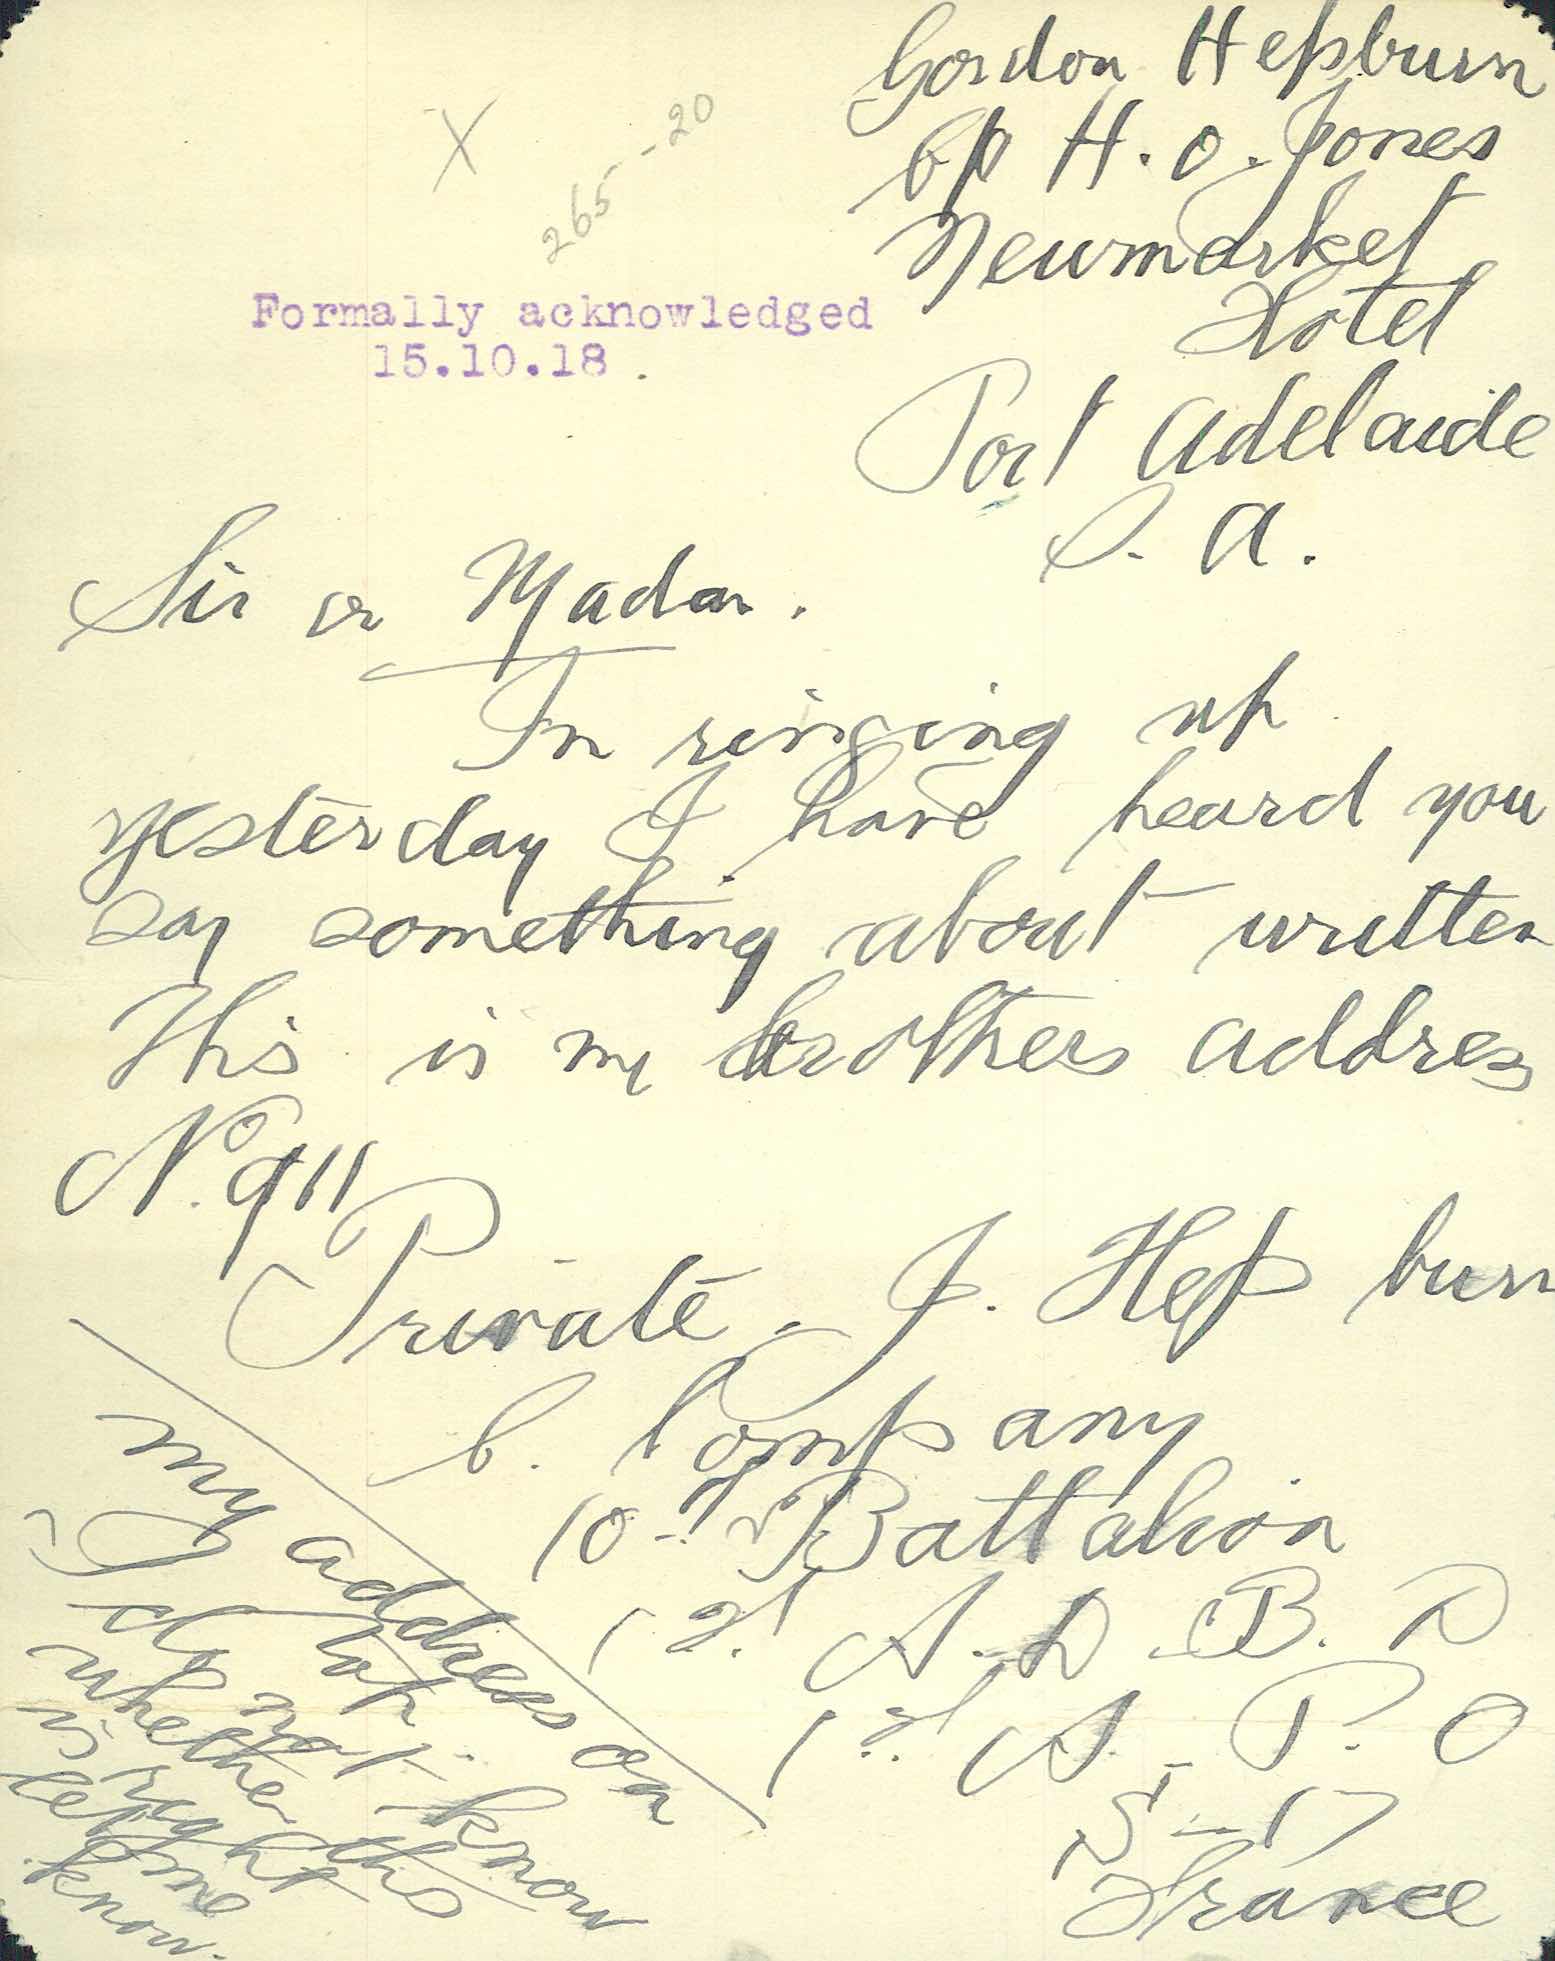 Gordon Hepburn
C/o H. O. Jones
Newmarket
Hotel
Port Adelaide
S. A.
X
265--20
Formally acknowledged
15.10.18.
Sir or Madam.
In ringing up
yesterday I have heard you
say something about written
This is my brothers address
No. 911
Private. J. Hepburn
C. Company
10th Battalion
1st A. D. B. D
1st A. P. O
S-17
France
My address on
top.
I do not know
whether this
is right
let me
know.